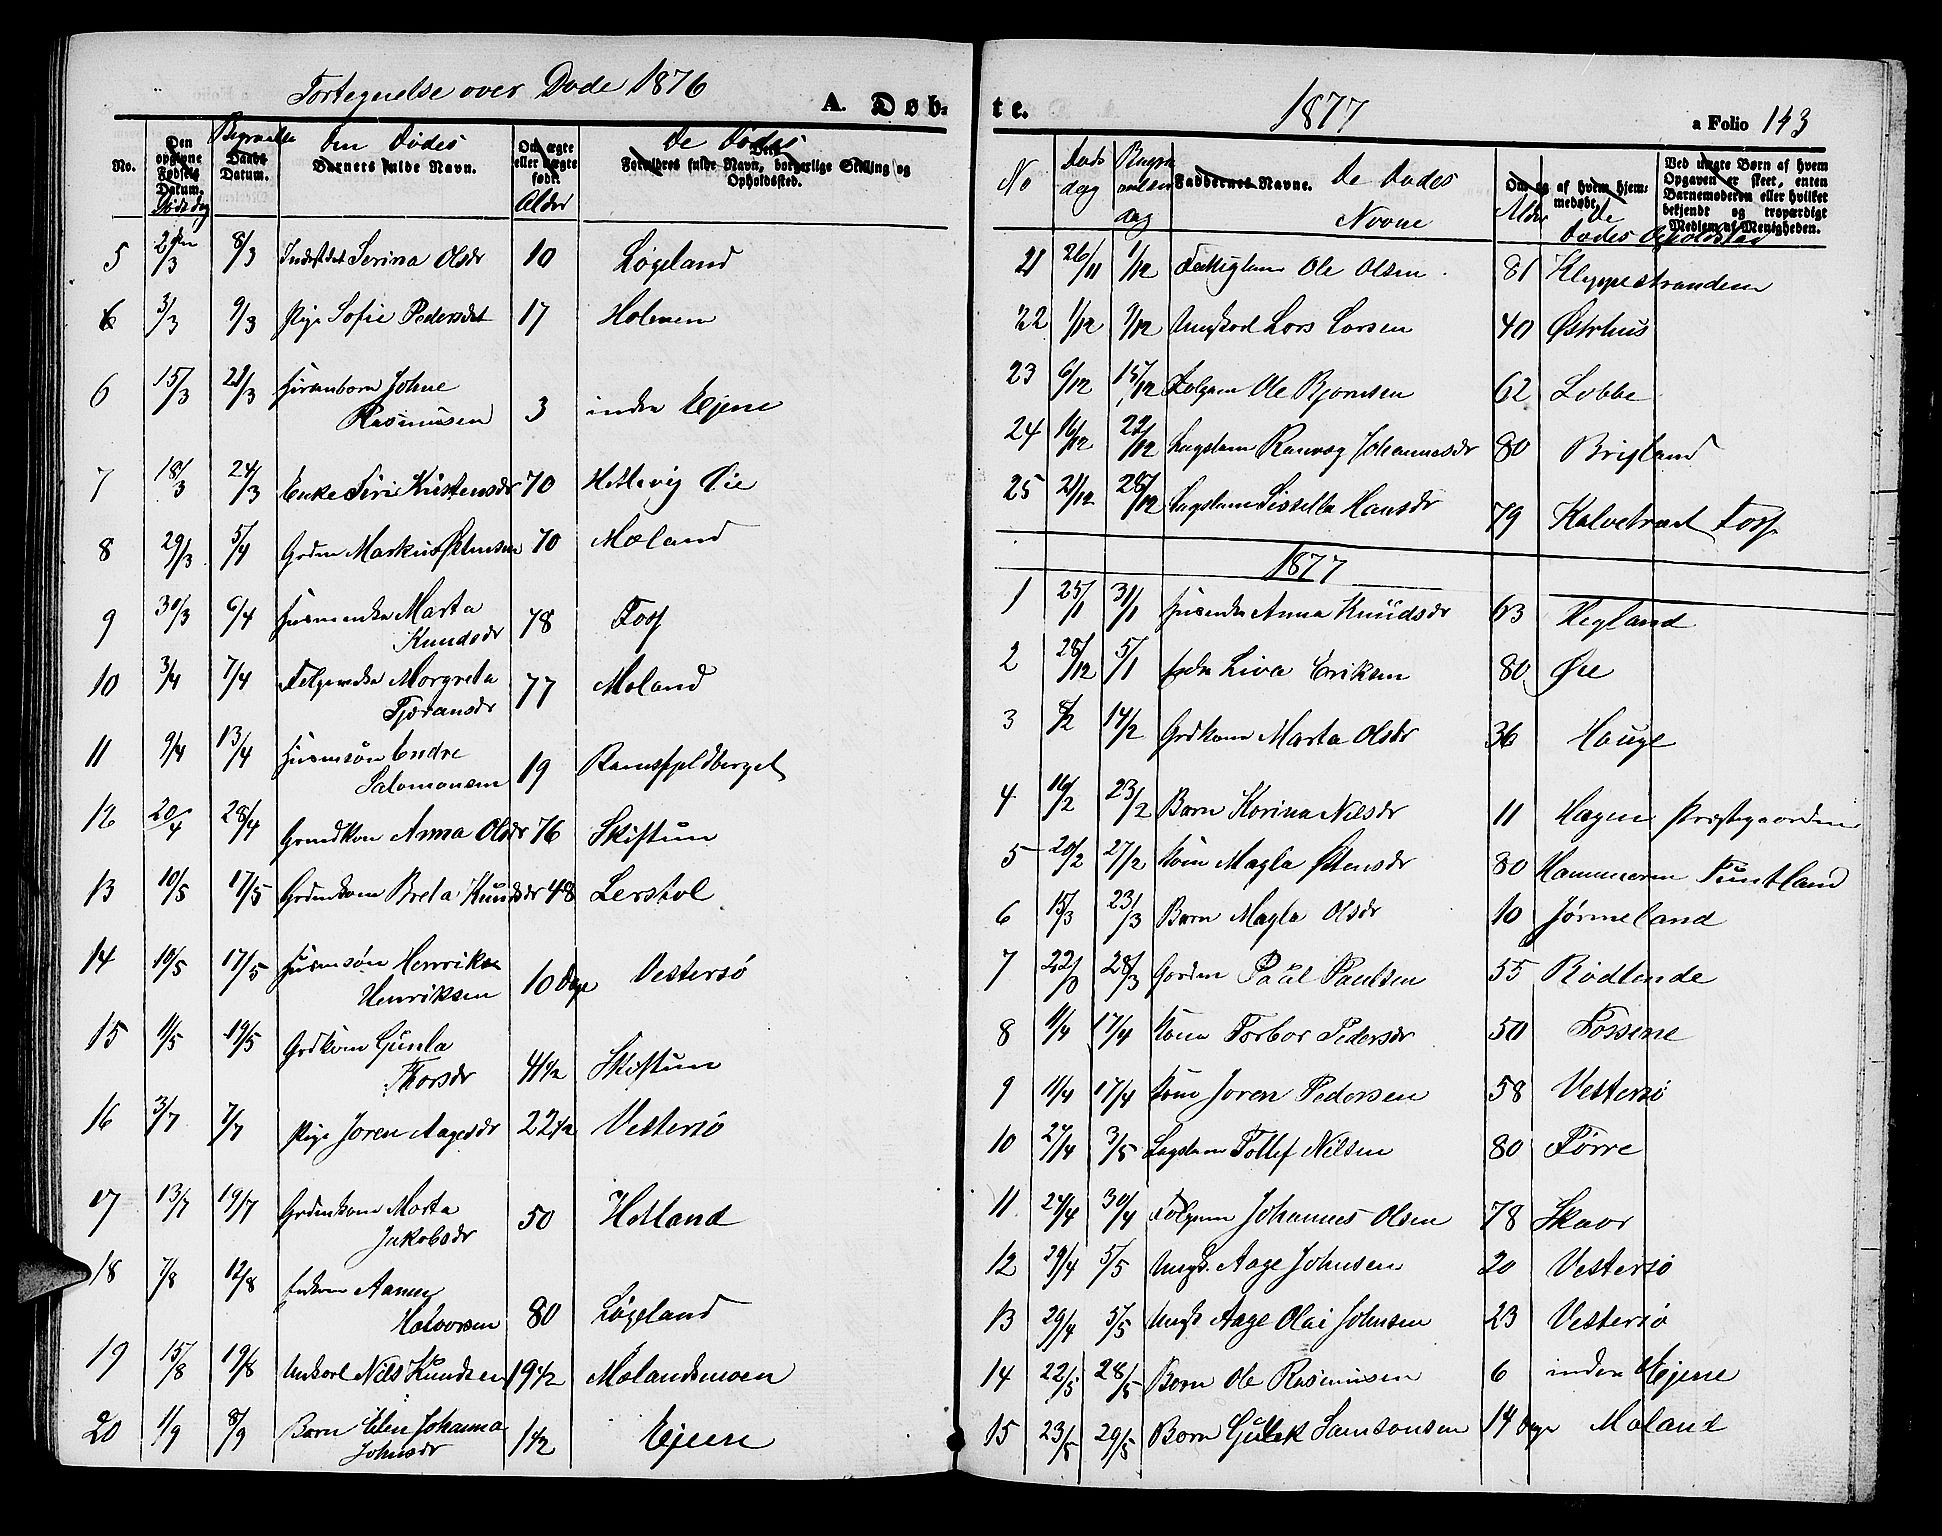 Fortegnelse over Døde 1876
A. Døb-
No. Den opgivne Fødsels Datum. Dødsdag Begravelse Daabs Datum. Den Dødes Barnets fulde Navn. Om ægte eller uægte født. Alder De Dødes Forældres fulde Navn, borgerlige Stilling og Opholdssted.
5 2/3 8/3 Serina Olsdr 10 Løgeland
6 3/3 9/3 Pige Sofie Pedersdt 17 Holmen
6 15/3 22/3 Johne
Rasmusen 3 indre Ejene
7 18/3 24/3 Enke Siri Kristensdr 70 Hetlevig Øie
8 29/3 5/4 Grdm Markus 70 Moland
9 30/3 6/4 Marta
Knudsdr 78 Fosf
10 3/4 7/4 Margreta
77 Moland
11 9/4 13/4 Husmsøn Endre
Salomonsen 19 Ramsfjeldberget
12 20/4 28/4 Anna Olsdr 76 Skiftun
13 10/5 17/5 Grdmkone Breta Knudsdr 48 Lerstol
14 10/5 17/5 Husmsøn Henrik
Henriksen 10 Dage Vestersø
15 11/5 19/5 Grdkone Gunla
Thorsdr 41 1/2 Skiftun
16 3/7 7/7 Pige Joren Aagesdr 22 1/2 Vestersø
17 13/7 19/7 Grdmkone Marta
Jakobsdr 50 Hetland
18 7/8 12/8
Halvorsen 80 Løgeland
19 15/8 19/8 Unkarl Nils Knudsen 19 1/2 Molandsmoen
20 1/9 8/9 Barn Elen Johanna
Johnsdr 1 1/2 Ejene
te. 1877 a Folio 143
No Døds dag Begravelses dag Faddernes Navne. De Dødes Navne Om og af hvem hjemmedøbt. Alder De Dødes Opholdsted Ved uægte Børn af hvem Opgaven er skeet, enten Barnemoderen eller hvilket bekjendt og troværdigt Medlem af Menigheden.
21 26/11 1/12 Fattiglem Ole Olsen 81 Kleppestranden
22 1/12 9/12 Ungkarl Lars Larsen 40 Østrhus
23 6/12 15/12 Folgem Ole Bjornsen 62 Lobbe
24 16/12 22/12 Lægslem Johannesdr 80
25 21/12 28/12 Lægslem Sissella Hansdr 79 Kalvetræet Fosf
1877
1 25/1 31/1 Anna Knudsdr 63 Hegland
2 28/12 5/1 Liva Eriksen 80 Øie
3 8/2 14/2 Grdkone Marta Olsdr 36 Hauge
4 16/2 23/2 Barn Korina Nilsdr 11 Hagen Præstegaarden
5 20/2 27/2 Kone Magla Østensdr 80 Hammeren Funtland
6 15/3 23/3 Barn Magla Olsdr 10 Jørmeland
7 22/3 28/3 Gordm Paul Paulsen 55 Rødlende
8 11/4 17/4 Kone Torbor Pedersdr 50 Fossene
9 11/4 17/4 Kone Joren Pedersen 58 Vestersø
10 27/4 3/5 Lægslem Tollef Nilsen 80 Førre
11 24/4 30/4 Folgem Johannes Olsen 78 Skaar
12 29/4 5/5 Ungk. Aage Johnsen 20 Vestersø
13 29/4 5/5 Ungk Aage Olai Johnsen 23 Vestersø
14 22/5 28/5 Barn Ole Rasmusen 6 indre Hejene
15 23/5 29/5 Barn Gullek Samsonsen 14 Dage Moland